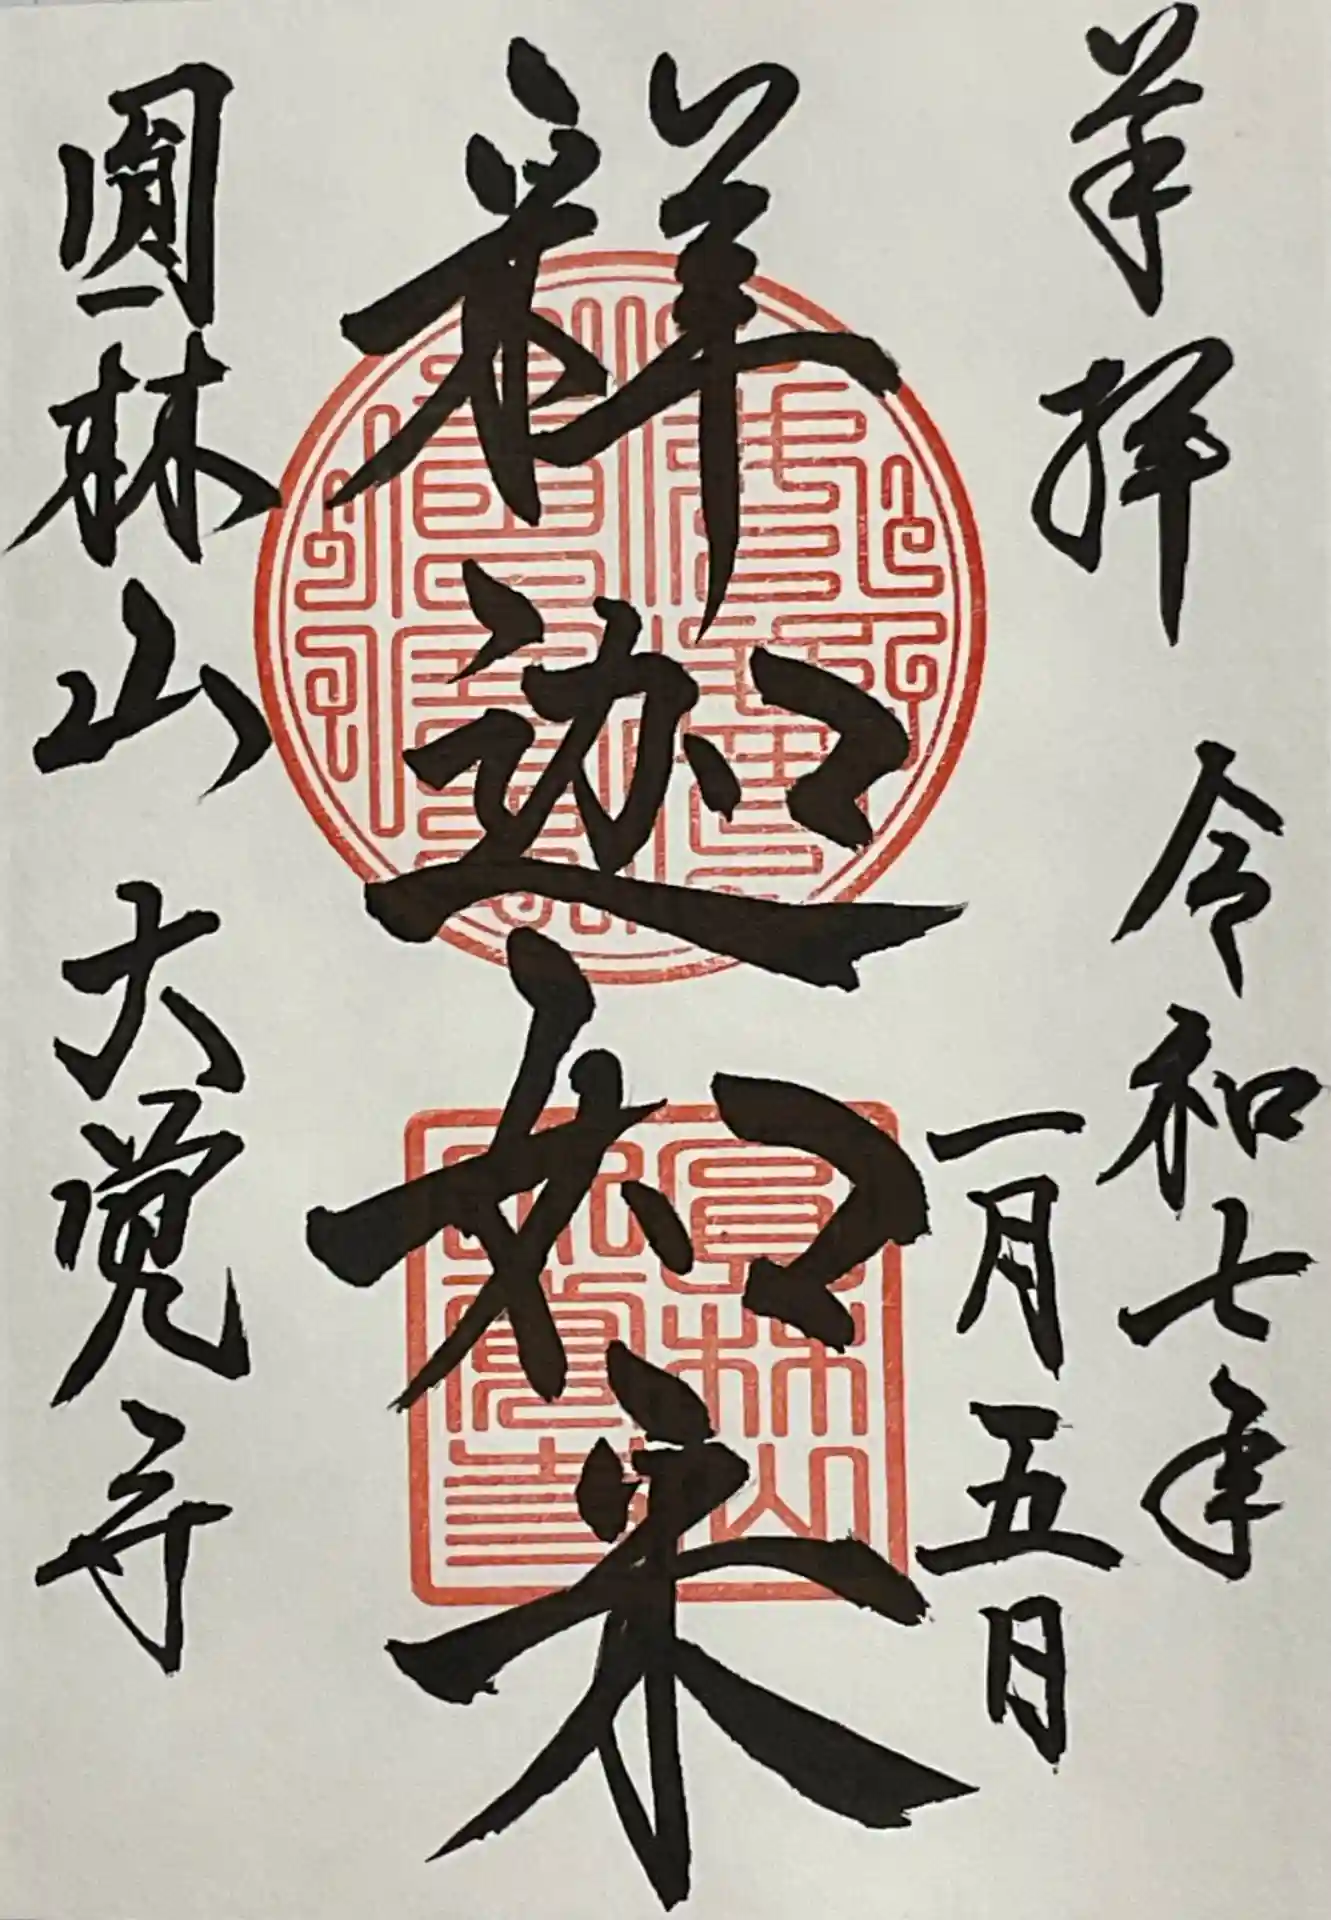 奉拝
令和七年
一月五日
釋迦如来
圓林山
大覚寺